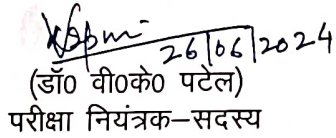 26/06/2024
(डॉ0 वी0के0 पटेल)
परीक्षा नियंत्रक–सदस्य